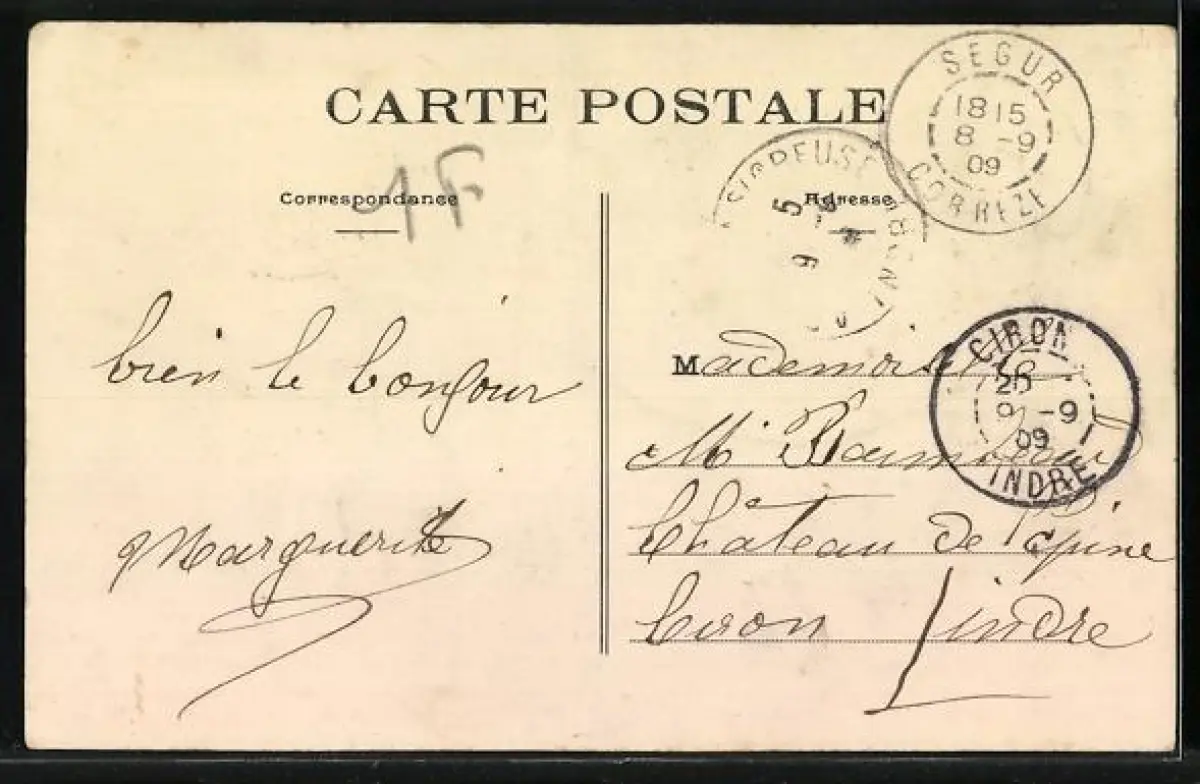 CARTE POSTALE
SEGUR
18 15
8 -9
09
CORREZE
1F
Correspondance
Adresse
5
9
bien le bonjour
Marguerite
Mademoiselle
CIRON
20
9 -9
09
INDRE
M
Château de l'Epine
Ciron indre